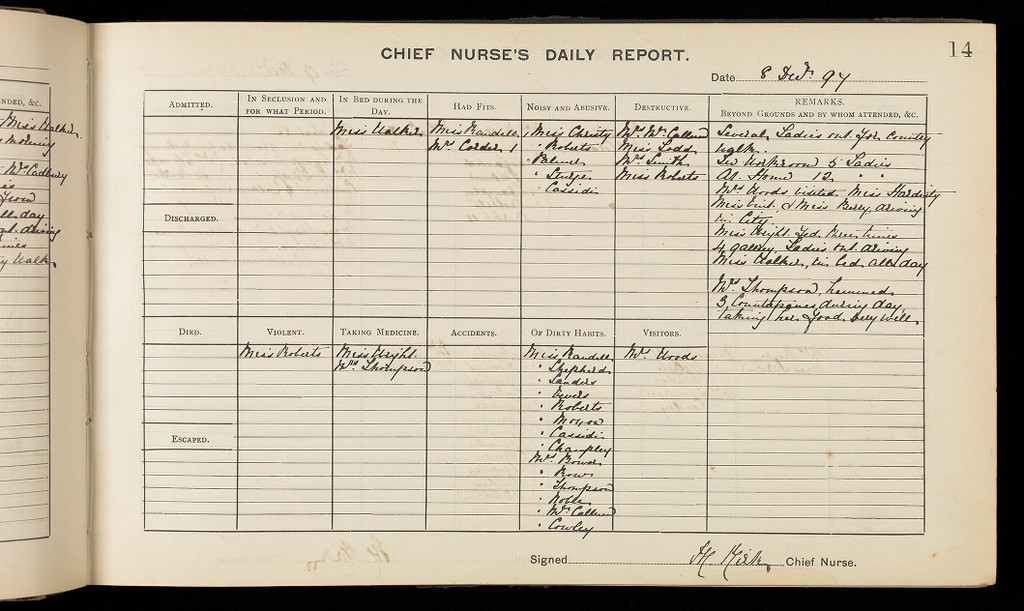 NDED, &C.
Miss Walker
Mr Cadbury
all day
CHIEF NURSE'S DAILY REPORT.
14
Date 8 Decr 97
ADMITTED.
IN SECLUSION AND FOR WHAT PERIOD.
IN BED DURING THE DAY.
Miss Walker
HAD FITS.
Miss Randell
Mrs Corder 1
NOISY AND ABUSIVE.
Miss Christy
" Roberts
" Palmer
" Sturge
" Cassidi
DESTRUCTIVE.
Mrs McCallum
Miss Todd
Mrs Smith
Miss Roberts
REMARKS.
BEYOND GROUNDS AND BY WHOM ATTENDED, &C.
Several Ladies out for Country
walk.
In Workroom 5 Ladies
At Home 12 " "
Mrs Woods visited Miss Hardisty
Miss & Miss Berry driving
in City.
Miss Wright fed three times
4 gallery Ladies out driving
Miss Walker, in bed all day
Mrs Thompson, hemmed
3 Counterpanes during day,
taking her food very well.
DISCHARGED.
DIED.
VIOLENT.
Miss Roberts
TAKING MEDICINE.
Miss Wright
Mrs Thompson
ACCIDENTS.
OF DIRTY HABITS.
Miss Randell
" Shepherd
" Sanders
" Roberts
" Moxon
" Cassidi
" Champley
Mrs Bowes
" Row
" Thompson
" Noble
" McCallum
" Cowley
VISITORS.
Mrs Woods
ESCAPED.
Signed H. Kirk Chief Nurse.